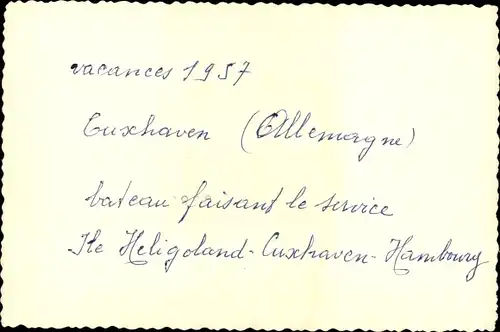 vacances 1957
Cuxhaven (Allemagne)
bateau faisant le service
Ile Heligoland-Cuxhaven-Hambourg